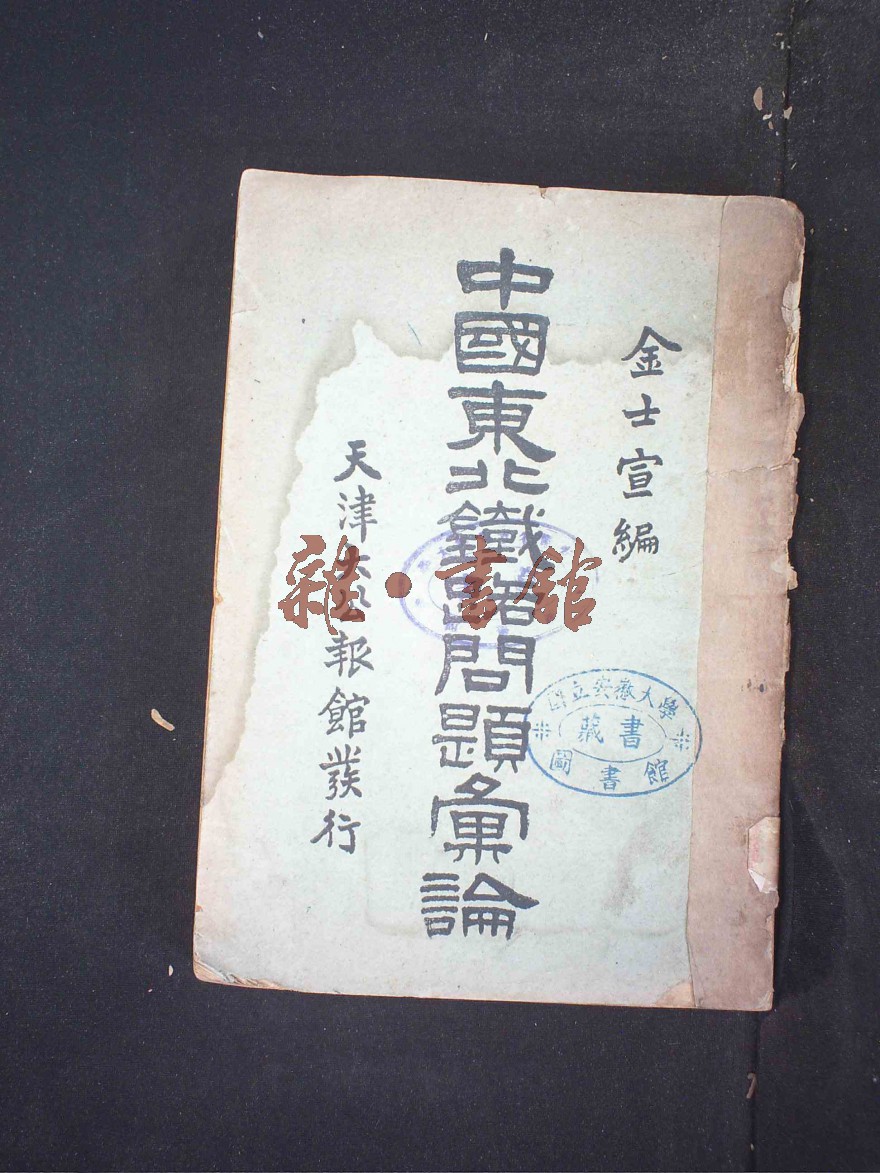 金士宣編
中國東北鐵路問題彙論
天津大公報館發行
國立安徽大學
藏書
圖書館
雜·書館